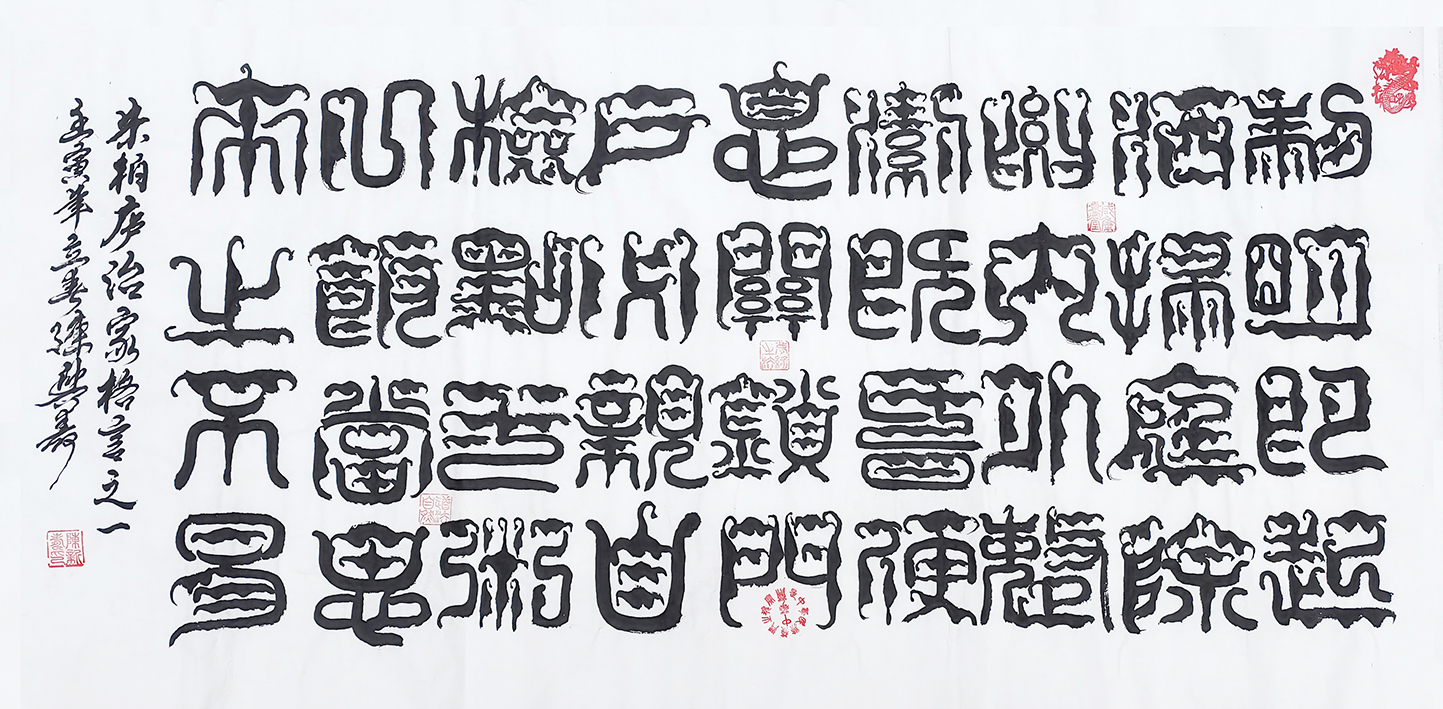 黎明即起
洒掃庭除
要內外整
潔既昏便
息關鎖門
戶必親自
檢點一粥
一飯當思
來之不易
朱柏庐治家格言之一
壬寅年立春